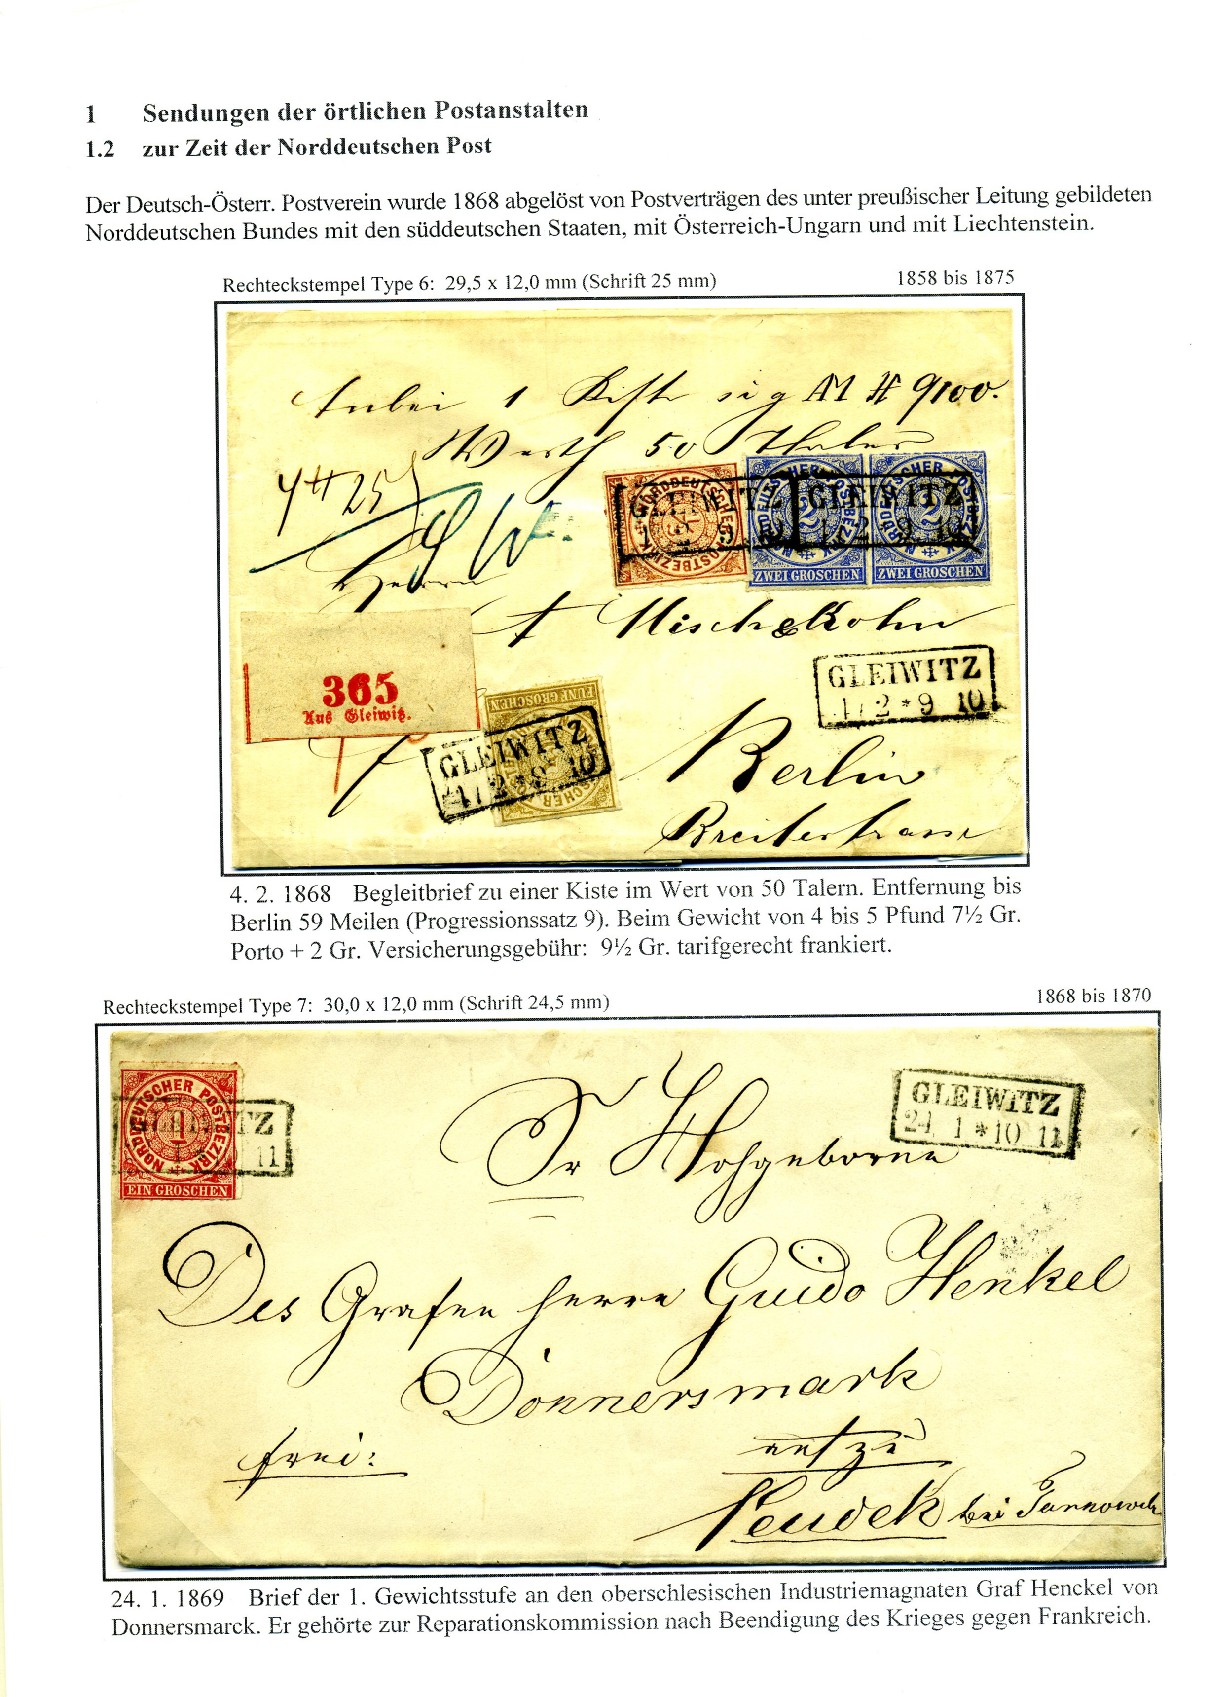 1 Sendungen der örtlichen Postanstalten
1.2 zur Zeit der Norddeutschen Post
Der Deutsch-Österr. Postverein wurde 1868 abgelöst von Postverträgen des unter preußischer Leitung gebildeten
Norddeutschen Bundes mit den süddeutschen Staaten, mit Österreich-Ungarn und mit Liechtenstein.
Rechteckstempel Type 6: 29,5 x 12,0 mm (Schrift 25 mm) 1858 bis 1875
Anbei 1 Kiste sig AM # 9100.
Werth 50 Thaler
4 # 25
NORDDEUTSCHER POSTBEZIRK
NORDDEUTSCHER POSTBEZIRK 2 ZWEI GROSCHEN
NORDDEUTSCHER POSTBEZIRK 2 ZWEI GROSCHEN
GLEIWITZ
GLEIWITZ
Herrn
Mischekohn
365
Aus Gleiwitz.
FÜNF GROSCHEN
GLEIWITZ
4 2 * 9 10
GLEIWITZ
4 2 * 9 10
Berlin
Breitestrasse
4. 2. 1868 Begleitbrief zu einer Kiste im Wert von 50 Talern. Entfernung bis
Berlin 59 Meilen (Progressionssatz 9). Beim Gewicht von 4 bis 5 Pfund 7½ Gr.
Porto + 2 Gr. Versicherungsgebühr: 9½ Gr. tarifgerecht frankiert.
Rechteckstempel Type 7: 30,0 x 12,0 mm (Schrift 24,5 mm) 1868 bis 1870
NORDDEUTSCHER POSTBEZIRK 1 EIN GROSCHEN
TZ
11
GLEIWITZ
24 1 * 10 11
Sr Hohgeboren
Des Grafen Herrn Guido Henkel
Donnersmark
frei:
auf zu
Neudek bei Tarnowitz
24. 1. 1869 Brief der 1. Gewichtsstufe an den oberschlesischen Industriemagnaten Graf Henckel von
Donnersmarck. Er gehörte zur Reparationskommission nach Beendigung des Krieges gegen Frankreich.